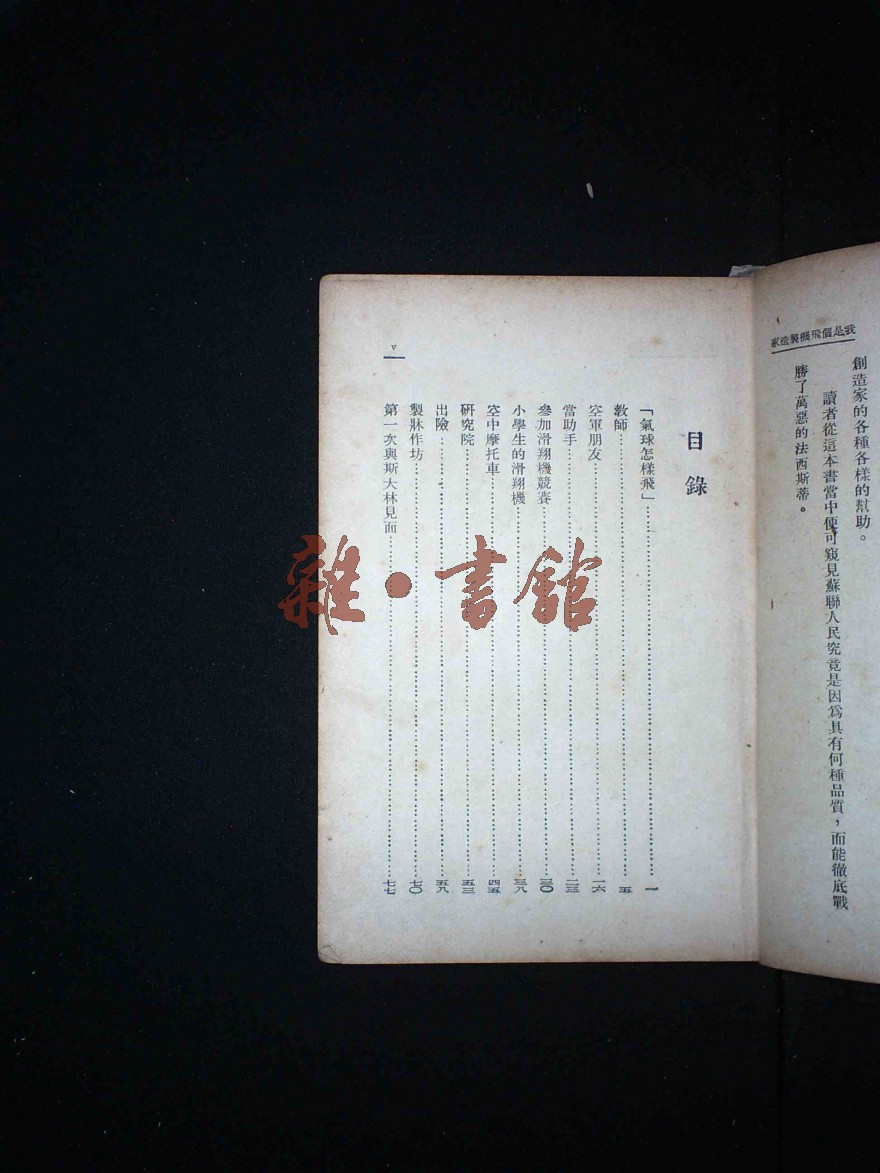 我是個飛機製造家
創造家的各種各樣的幫助。
讀者從這本書當中便可窺見蘇聯人民究竟是因爲具有何種品質，而能徹底戰
勝了萬惡的法西斯蒂。
目錄
「氣球怎樣飛」……一
教師……五
空軍朋友……一六
當助手……二三
參加滑翔機競賽……三〇
小學生的滑翔機……三八
空中摩托車……四五
研究院……五三
出險……五八
製牀作坊……七〇
第一次與斯大林見面……七七
v
雜·書館